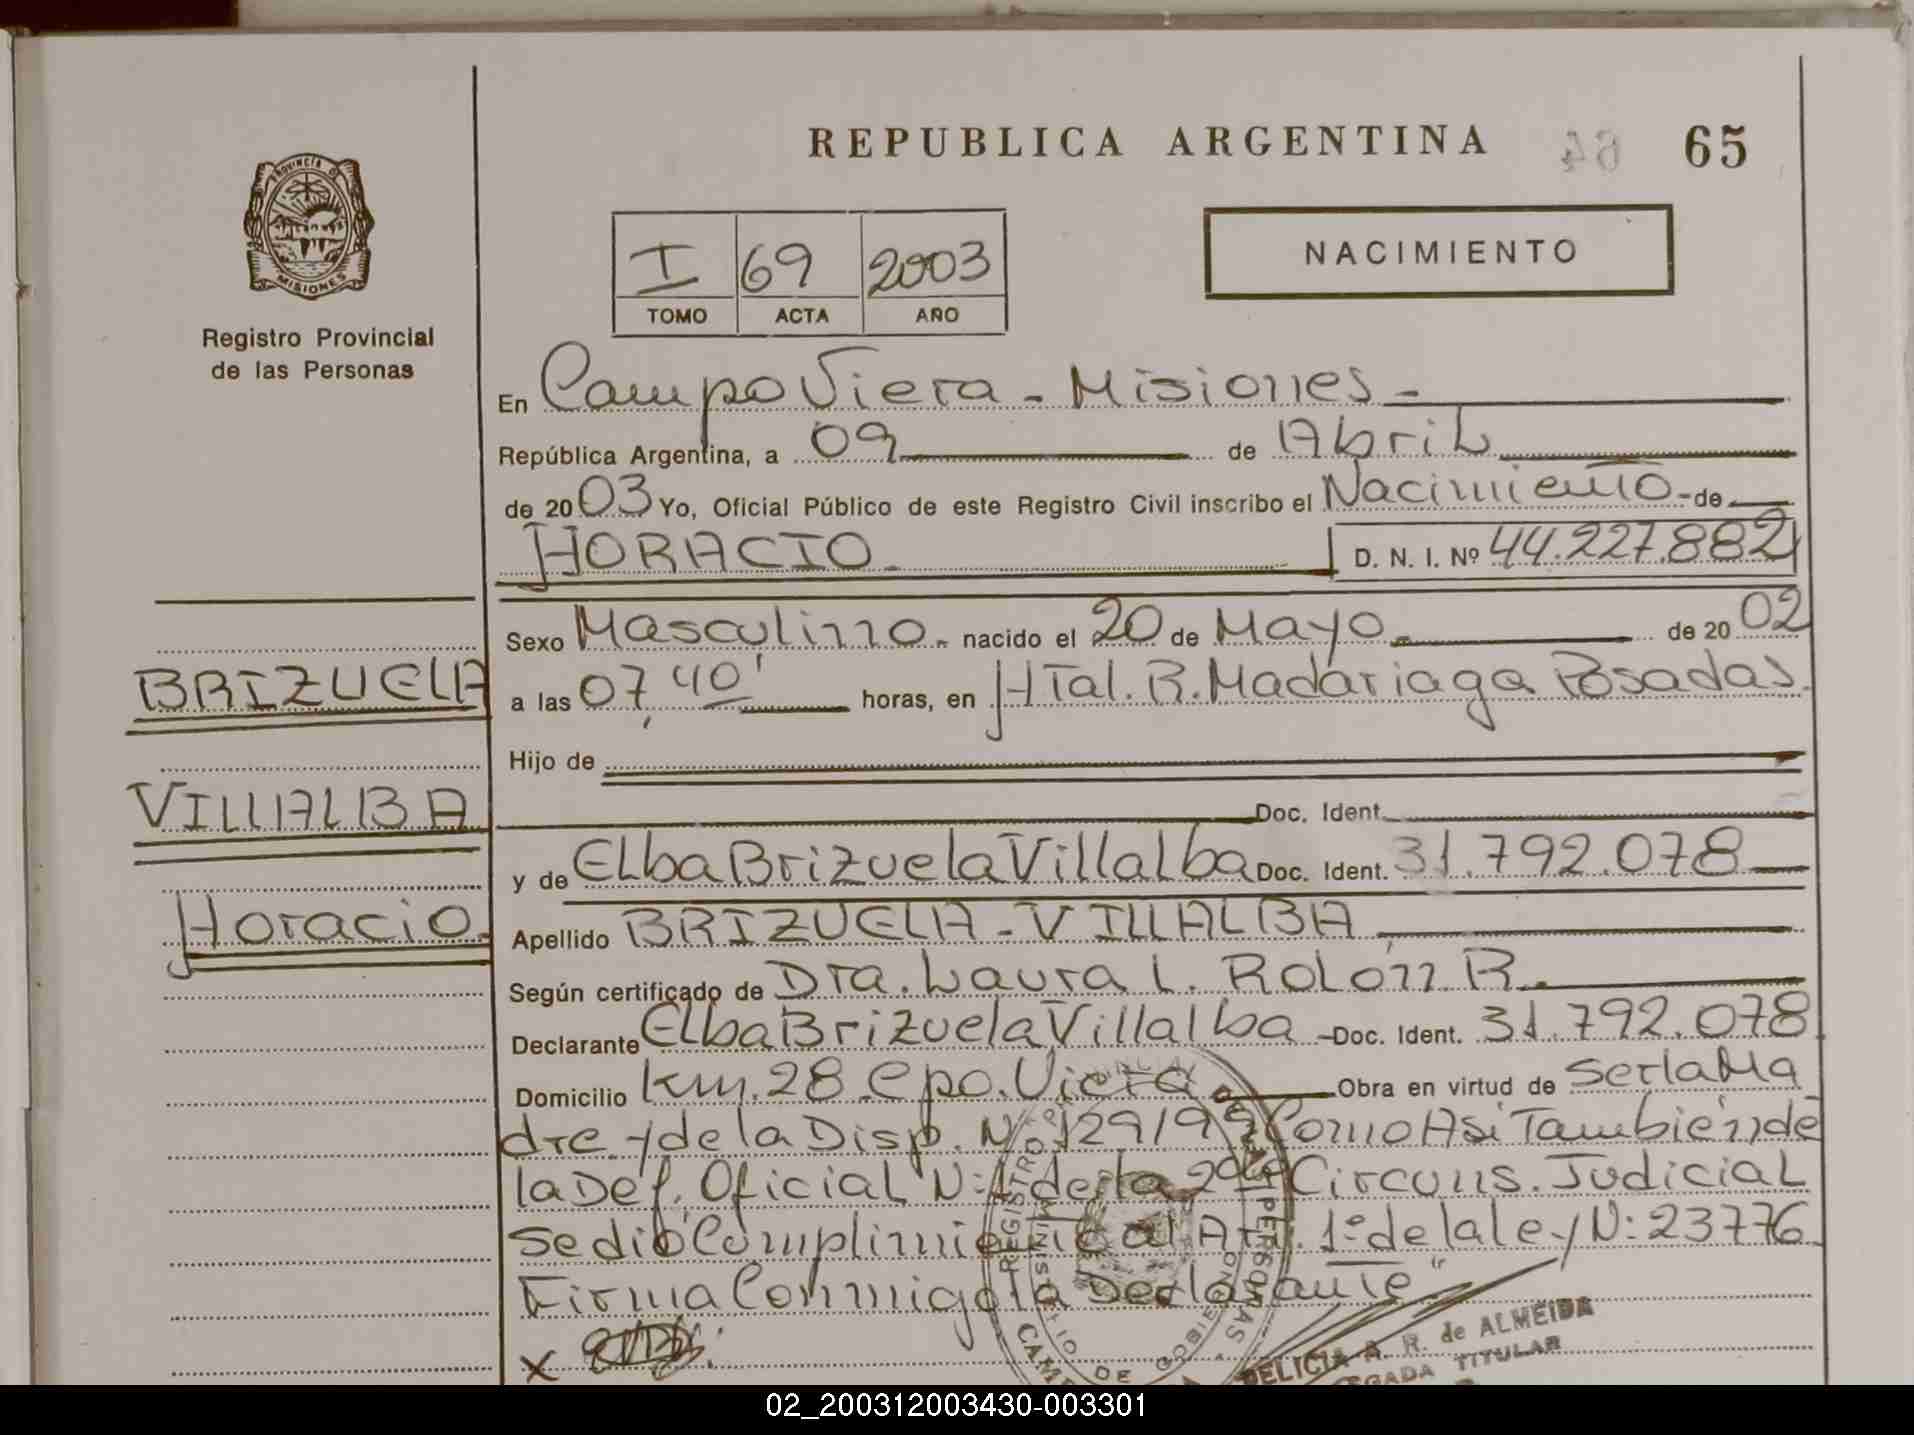 REPUBLICA ARGENTINA 64 65
PROVINCIA DE
MISIONES
Registro Provincial
de las Personas
I 69 2003
TOMO ACTA AÑO
NACIMIENTO
En Campo Viera - Misiones -
República Argentina, a 09 de Abril
de 2003 Yo, Oficial Público de este Registro Civil inscribo el Nacimiento - de
HORACIO. D. N. I. Nº 44.227.882
Sexo Masculino. nacido el 20 de Mayo. de 20 02
BRIZUELA
a las 07,40' horas, en HTal. R. Madariaga Posadas.
Hijo de
VILLALBA
Doc. Ident.
y de Elba Brizuela Villalba Doc. Ident. 31.792.078
Horacio.
Apellido BRIZUELA - VILLALBA
Según certificado de Dra. Laura L. Rolón R.
Declarante Elba Brizuela Villalba - Doc. Ident. 31.792.078
Domicilio Km. 28 Cpo. Viera Obra en virtud de SerlaMa
dre y de la Disp. Nº 129/99 Como Asi También de
la Def. Oficial N:1 de la 2da Circuns. Judicial
Se dió Complimiento al Art. 1º de la ley N: 23776
Firma Conmigo la Declarante"
x
REGISTRO PROVINCIAL DE LAS PERSONAS
MINISTERIO DE GOBIERNO
DELICIA A. R. de ALMEIDA
TITULAR
02_200312003430-003301